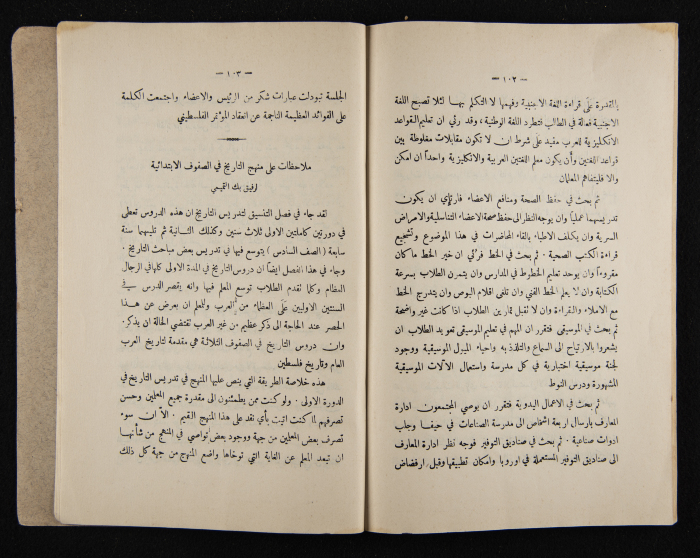 — ١٠٢ —
بالقدرة على قراءة اللغة الاجنبية وفهمها لا التكلم بها لئلا تصبح اللغة
الاجنبية فعالة في الطالب فتطرد اللغة الوطنية، وقد رئي ان تعليم القواعد
الانكليزية للعرب مفيد على شرط ان لا تكون مقابلات مغلوطة بين
قواعد اللغتين وأن يكون معلم اللغتين العربية والانكليزية واحداً ان امكن
والا فليتفاهم المعلمان
ثم بحث في حفظ الصحة ومنافع الاعضاء فارتؤي ان يكون
تدريسهما عملياً وان يوجه النظر الى حفظ صحة الاعضاء التناسلية والامراض
السرية وان يكلف الاطباء بالقاء المحاضرات في هذا الموضوع وتشجيع
قراءة الكتب الصحية . ثم بحث في الخط فرئي ان خير الخط ما كان
مقروءاً وان يوحد تعليم الخطوط في المدارس وان يتمرن الطلاب بسرعة
الكتابة وان لا يعلم الخط الفني وان تلغى اقلام البوص وان يتدرج الخط
مع الاملاء والقراءة وان لا تقبل تمارين الطلاب اذا كانت غير واضحة
ثم بحث في الموسيقى فتقرر ان المهم في تعليم الموسيقى تعويد الطلاب ان
يشعروا بالارتياح الى السماع والتلذذ به واحياء الميول الموسيقية ووجود
لجنة موسيقية اختيارية في كل مدرسة واستعمال الآلات الموسيقية
المشهورة ودرس النوط
ثم بحث في الاعمال اليدوية فتقرر ان يوصي المجتمعون ادارة
المعارف بارسال اربعة اشخاص الى مدرسة الصناعات في حيفا وجلب
ادوات صناعية . ثم بحث في صناديق التوفير فوجه نظر ادارة المعارف
الى صناديق التوفير المستعملة في اوروبا وامكان تطبيقها وقبل ارفضاض
— ١٠٣ —
الجلسة تبودلت عبارات شكر من الرئيس والاعضاء واجتمعت الكلمة
على الفوائد العظيمة الناجمة عن انعقاد المؤتمر الفلسطيني
ملاحظات على منهج التاريخ في الصفوف الابتدائية
لرفيق بك التميمي
لقد جاء في فصل التنسيق لتدريس التاريخ ان هذه الدروس تعطى
في دورتين كاملتين الاولى ثلاث سنين وكذلك الثانية ثم تليهما سنة
سابعة ( الصف السادس ) يتوسع فيها في تدريس بعض مباحث التاريخ .
وجاء في هذا الفصل ايضاً ان دروس التاريخ في المدة الاولى كلها في الرجال
العظام وكلما تقدم الطلاب توسع المعلم فيها وانه يقصر الدرس في
السنتين الاوليين على العظماء من العرب وللمعلم ان يعرض عن هذا
الحصر عند الحاجة الى ذكر عظيم من غير العرب تقتضي الحالة ان يذكر.
وان دروس التاريخ في الصفوف الثلاثة هي مقدمة لتاريخ العرب
العام وتاريخ فلسطين
هذه خلاصة الطريقة التي ينص عليها المنهج في تدريس التاريخ في
الدورة الاولى . ولو كنت ممن يطمئنون الى مقدرة جميع المعلمين وحسن
تصرفهم لما كنت اتيت بأي نقد على هذا المنهج القيم . الا ان سوء
تصرف بعض المعلمين من جهة ووجود بعض نواصي في المنهج من شأنها
ان تبعد المعلم عن الغاية التي توخاها واضع المنهج من جهة كل ذلك